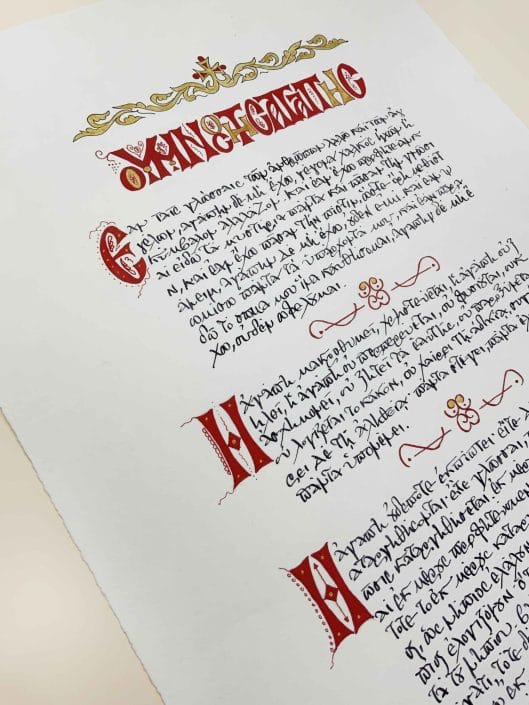 ΟΥΜΝΟΣΤΗΣΑΓΑΠΗΣ
Ἐὰν ταῖς γλώσσαις τῶν ἀνθρώπων λαλῶ καὶ τῶν ἀγ
γέλων, ἀγάπην δὲ μὴ ἔχω, γέγονα χαλκὸς ἠχῶν ἢ
κύμβαλον ἀλαλάζον. καὶ ἐὰν ἔχω προφητείαν κ
αὶ εἰδῶ τὰ μυστήρια πάντα καὶ πᾶσαν τὴν γνῶσι
ν, καὶ ἐὰν ἔχω πᾶσαν τὴν πίστιν, ὥστε ὄρη μεθιστ
άνειν, ἀγάπην δὲ μὴ ἔχω, οὐδέν εἰμι. καὶ ἐὰν ψ
ωμίσω πάντα τὰ ὑπάρχοντά μου, καὶ ἐὰν παρα
δῶ τὸ σῶμά μου ἵνα καυθήσομαι, ἀγάπην δὲ μὴ ἔ
χω, οὐδὲν ὠφελοῦμαι.
Ἡ ἀγάπη μακροθυμεῖ, χρηστεύεται, ἡ ἀγάπη οὐ ζ
ηλοῖ, ἡ ἀγάπη οὐ περπερεύεται, οὐ φυσιοῦται, οὐκ
ἀσχημονεῖ, οὐ ζητεῖ τὰ ἑαυτῆς, οὐ παροξύνεται,
οὐ λογίζεται τὸ κακόν, οὐ χαίρει τῇ ἀδικίᾳ,
ρει δὲ τῇ ἀληθείᾳ· πάντα στέγει, πάντα
πάντα ὑπομένει.
Ἡ ἀγάπη οὐδέποτε ἐκπίπτει. εἴτε
καταργηθήσονται· εἴτε γλῶσσαι,
καταργηθήσεται. ἐκ
αὶ ἐκ μέρους προφητεύομεν
τότε τὸ ἐκ μέρους
η, ὡς νήπιος
ήπιος ἐλογιζόμην·
τὰ τοῦ νηπίου.
τότε
ἐκ